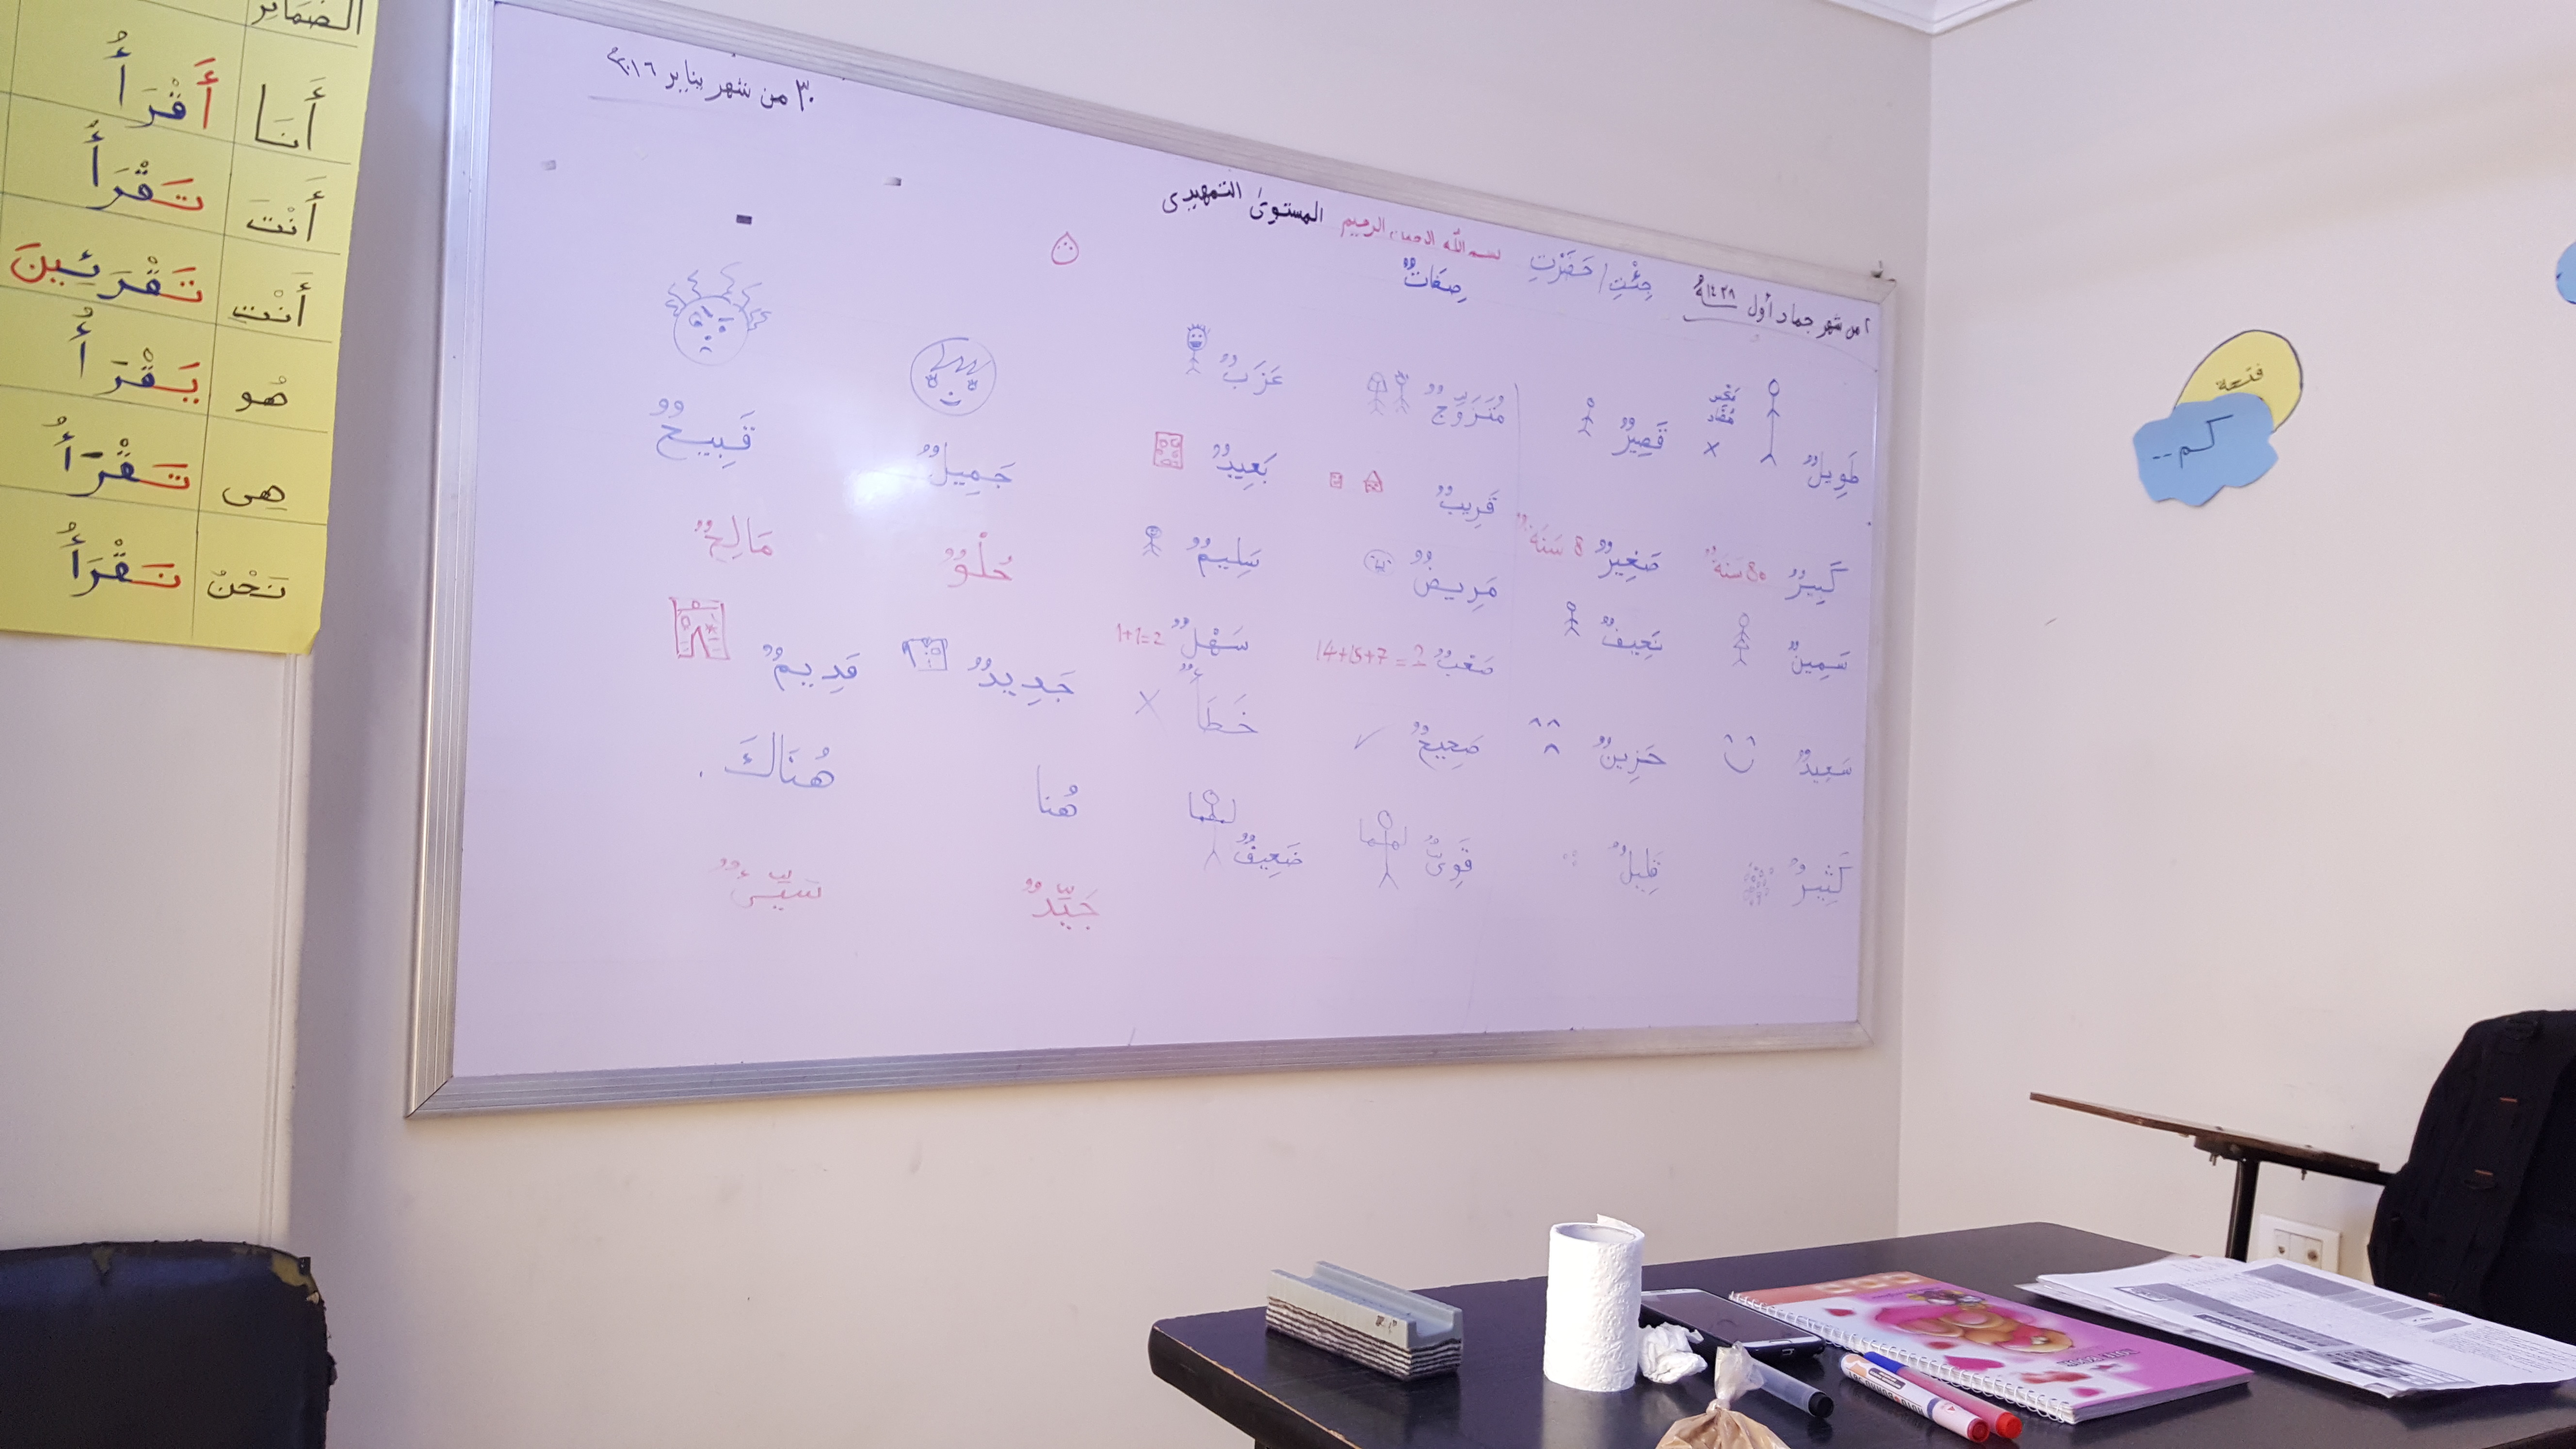 ٣٠ من شهر يناير ٢٠١٦م
المستوىٰ التمهيدى
بسم الله الرحمن الرحيم
جِئْتِ / حَضَرْتِ
٢ من شهر جماد أول ١٤٣٨هـ
صِفَاتٌ
طَوِيلٌ × قَصِيرٌ
مُتَزَوِّجٌ عَزَبٌ
جَمِيلٌ قَبِيحٌ
قَرِيبٌ بَعِيدٌ
كَبِيرٌ 80 سَنَةً صَغِيرٌ 8 سَنَة
مَرِيضٌ سَلِيمٌ
حُلْوٌ مَالِحٌ
سَمِينٌ نَحِيفٌ
صَعْبٌ 14+15+7=? سَهْلٌ 1+1=2
جَدِيدٌ قَدِيمٌ
سَعِيدٌ حَزِينٌ
صَحِيحٌ ✓ خَطَأٌ ×
هُنا هُنَاكَ .
كَثِيرٌ قَلِيلٌ
قَوِىٌّ ضَعِيفٌ
جَيِّدٌ سَيِّئٌ
الضمائر
أَنَا أَقْرَأُ
أَنْتَ تَقْرَأُ
أَنْتِ تَقْرَئِينَ
هُو يَقْرَأُ
هِى تَقْرَأُ
نَحْنُ نَقْرَأُ
فتحة
كم --